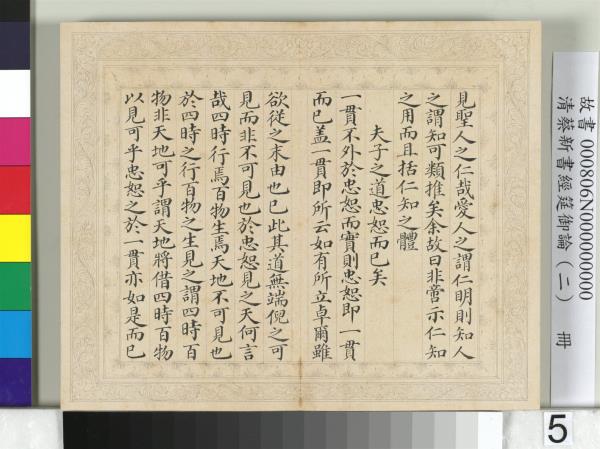 見聖人之仁哉愛人之謂仁明則知人
之謂知可類推矣余故曰非啻示仁知
之用而且括仁知之體
夫子之道忠恕而已矣
一貫不外於忠恕而實則忠恕即一貫
而已盖一貫即所云如有所立卓爾雖
欲從之末由也已此其道無端倪之可
見而非不可見也於忠恕見之天何言
哉四時行焉百物生焉天地不可見也
於四時之行百物之生見之謂四時百
物非天地可乎謂天地將借四時百物
以見可乎忠恕之於一貫亦如是而已
故書 000806N000000000
清蔡新書經筵御論(二) 冊
5